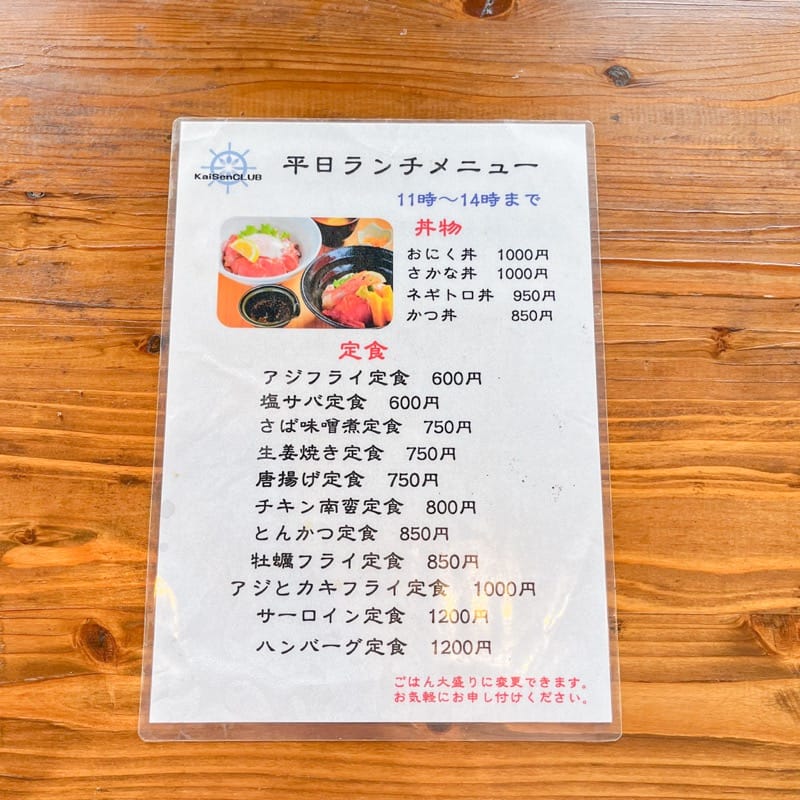 KaiSenCLUB
平日ランチメニュー
11時～14時まで
丼物
おにく丼 1000円
さかな丼 1000円
ネギトロ丼 950円
かつ丼 850円
定食
アジフライ定食 600円
塩サバ定食 600円
さば味噌煮定食 750円
生姜焼き定食 750円
唐揚げ定食 750円
チキン南蛮定食 800円
とんかつ定食 850円
牡蠣フライ定食 850円
アジとカキフライ定食 1000円
サーロイン定食 1200円
ハンバーグ定食 1200円
ごはん大盛りに変更できます。
お気軽にお申し付けください。